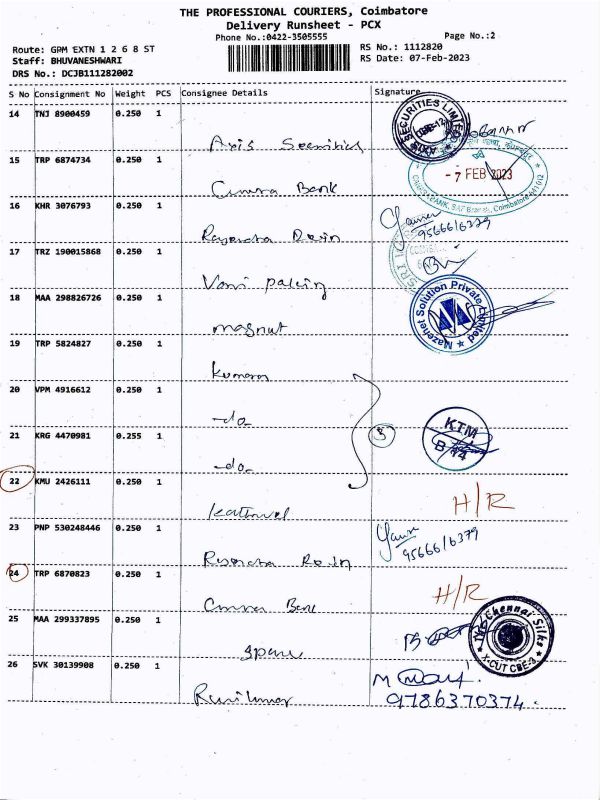 THE PROFESSIONAL COURIERS, Coimbatore
Delivery Runsheet - PCX
Phone No.:0422-3505555
Page No.:2
Route: GPM EXTN 1 2 6 8 ST
RS No.: 1112820
Staff: BHUVANESHWARI
RS Date: 07-Feb-2023
DRS No.: DCJB111282002
S No Consignment No Weight PCS Consignee Details Signature
14 TNJ 8900459 0.250 1
Axis Securities
AXIS SECURITIES LIMITED
15 TRP 6874734 0.250 1
Canara Bank
- 7 FEB 2023
16 KHR 3076793 0.250 1
9566616379
17 TRZ 190015868 0.250 1
Vani
18 MAA 298826726 0.250 1
magnut
Mazenet Solution Private Limited
19 TRP 5824827 0.250 1
Kumaran
20 VPM 4916612 0.250 1
-do-
21 KRG 4470981 0.255 1
3
KTM
-do-
22 KMU 2426111 0.250 1
H/R
Kathirvel
23 PNP 530248446 0.250 1
9566616379
24 TRP 6870823 0.250 1
H/R
Canara Bank
25 MAA 299337895 0.250 1
The Chennai Silks
X-CUT CBE-3
26 SVK 30139908 0.250 1
Ravikumar
9786370374.